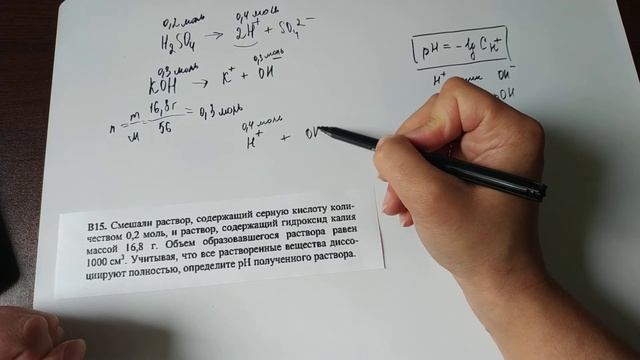 0,2 моль 0,4 моль
H₂SO₄ → 2H⁺ + SO₄²⁻
0,3 моль 0,3 моль
KOH → K⁺ + OH⁻
n = m/M = 16,8 г/56 = 0,3 моль
0,4 моль
H⁺ + OH
pH = -lg C H⁺
H⁺ OH⁻
OH
В15. Смешали раствор, содержащий серную кислоту коли-
чеством 0,2 моль, и раствор, содержащий гидроксид калия
массой 16,8 г. Объем образовавшегося раствора равен
1000 см³. Учитывая, что все растворенные вещества диссо-
циируют полностью, определите pH полученного раствора.